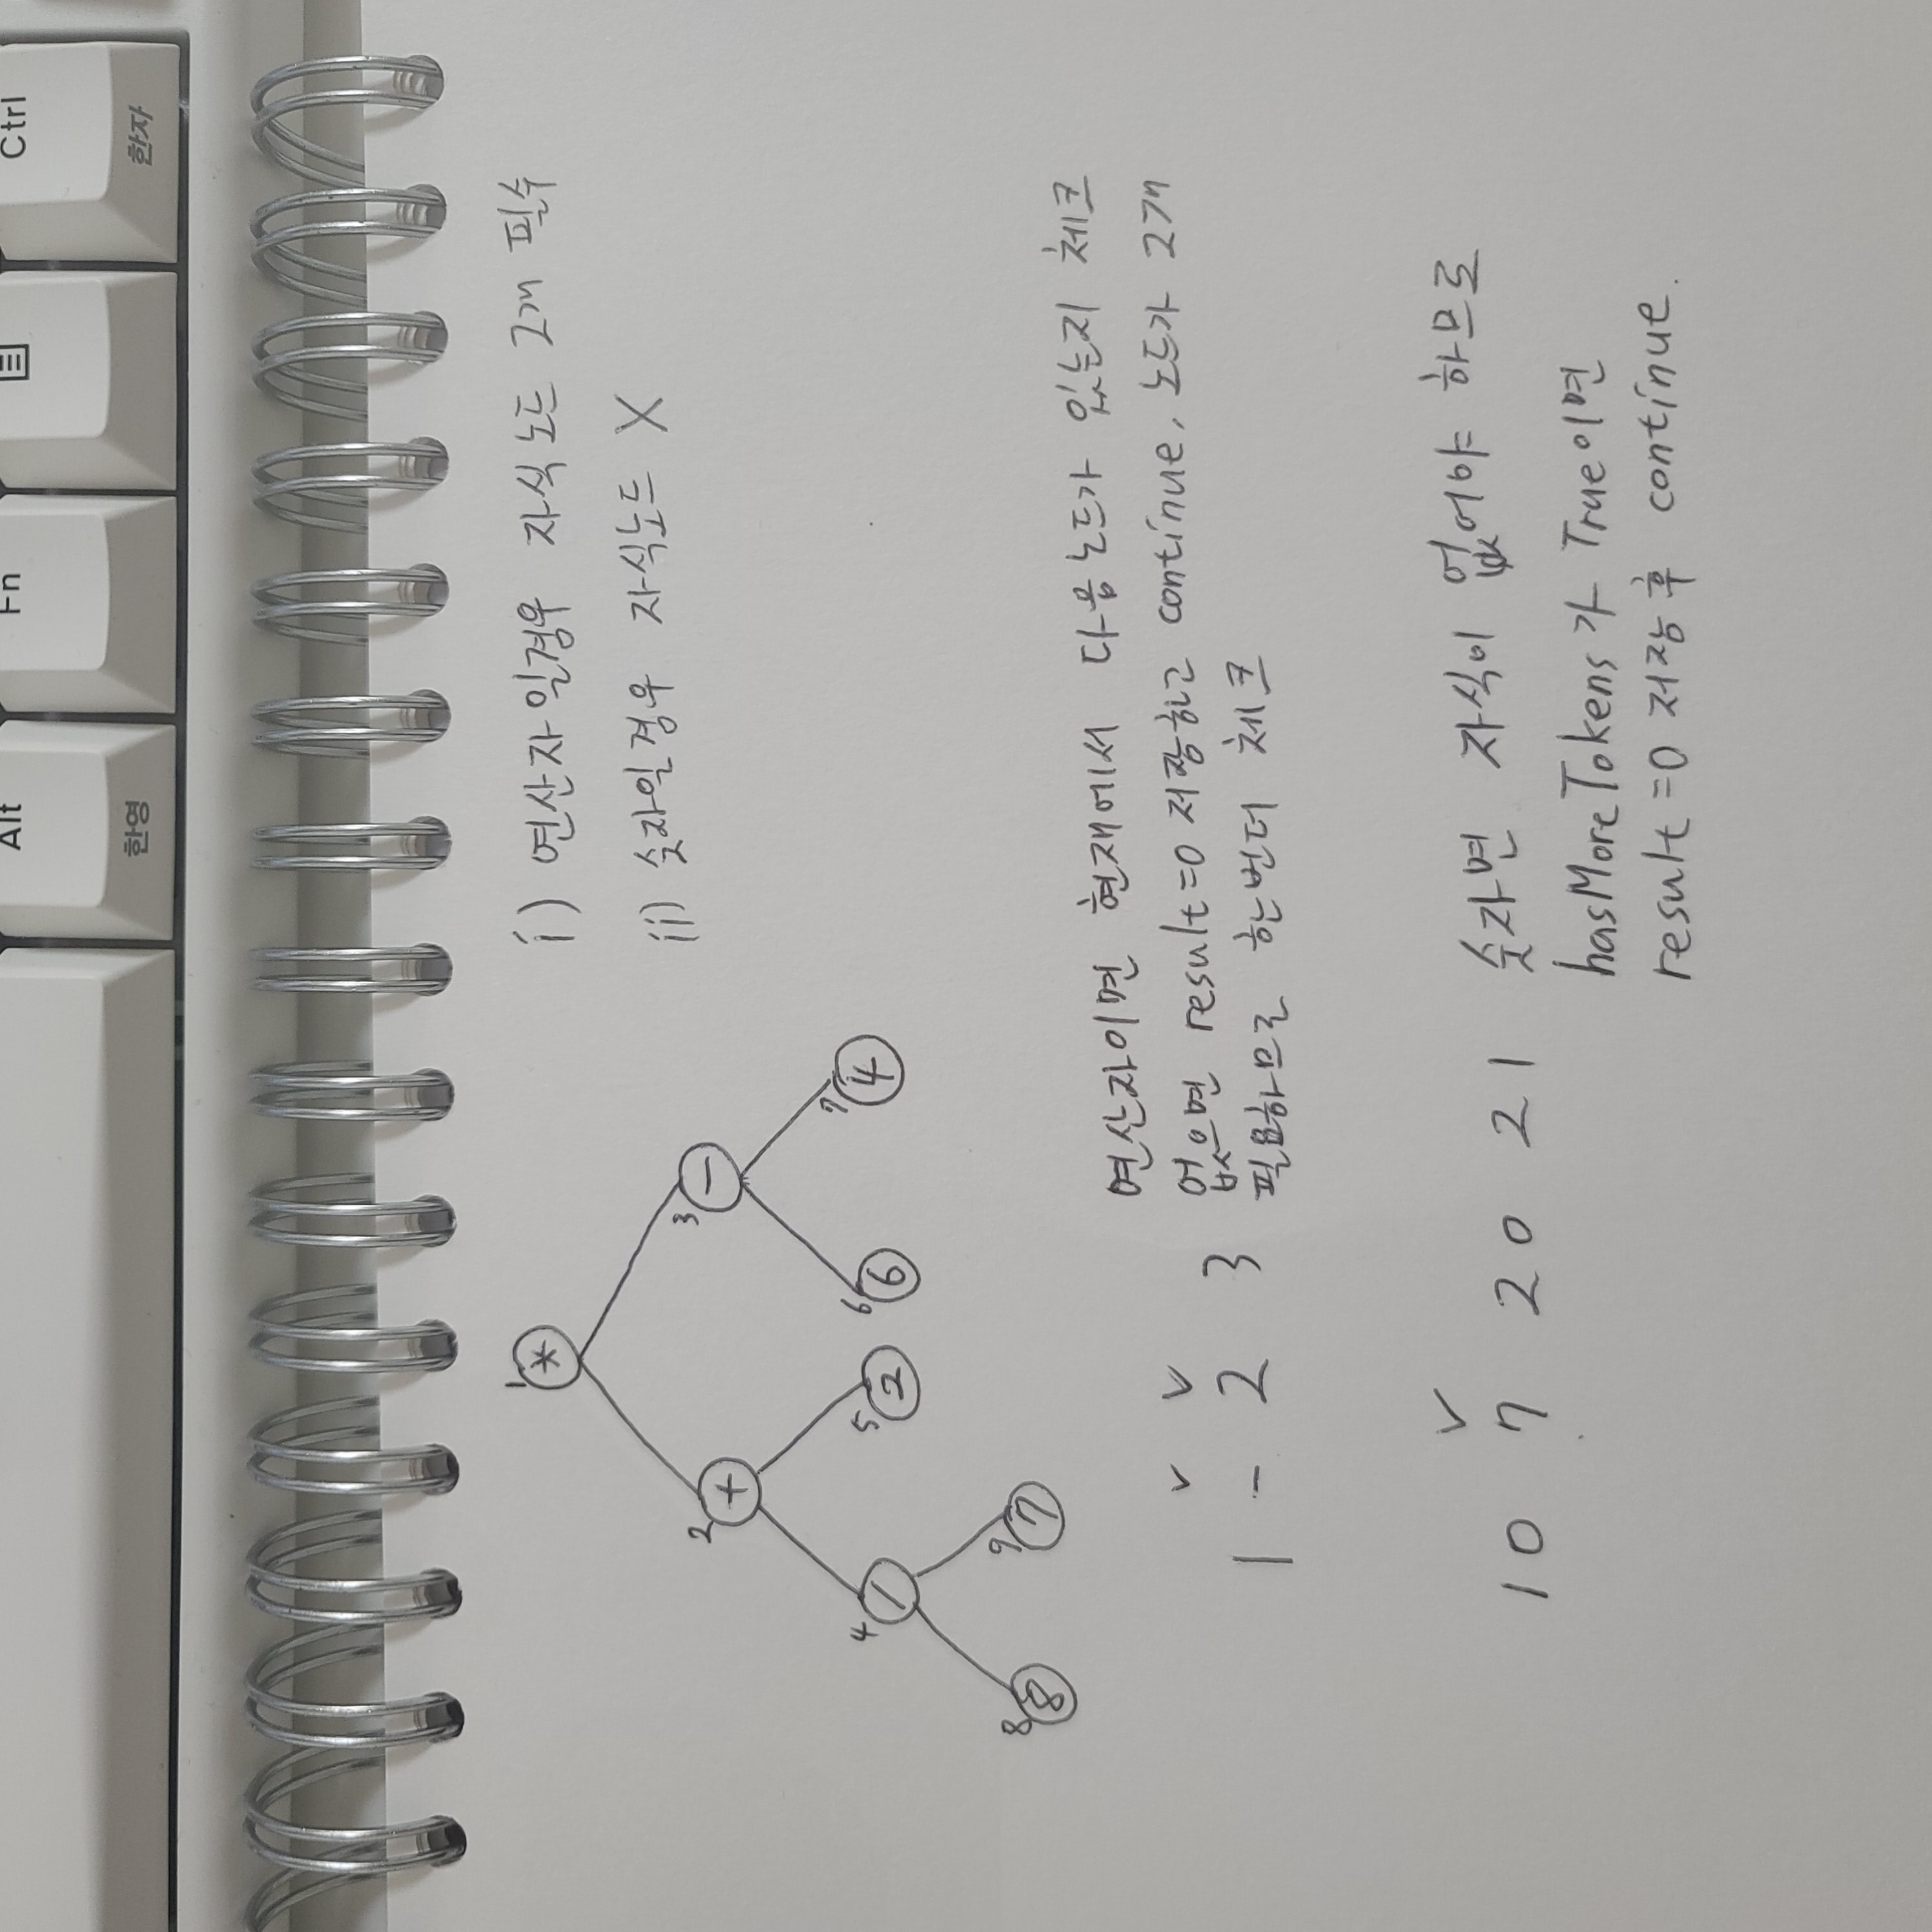 Alt Fn Ctrl
한영 한자
1 *
i) 연산자일경우 자식노드 2개 필수
ii) 숫자일경우 자식노드 X
2 + 3 -
4 / 5 2 6 6 7 4
8 8 9 7
연산자이면 현재에서 다음노드가 있는지 체크
없으면 result=0 저장하고 continue, 노드가 2개
필요하므로 한번더 체크
1 - 2 3
10 7 20 21
숫자면 자식이 없어야 하므로
hasMoreTokens가 True이면
result=0 저장 후 continue.